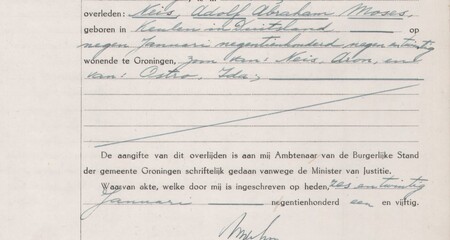 overleden: Neis, Adolf Abraham Moses,
geboren in Kenten in Duitsland op
negen Januari negentienhonderd negen en twintig
wonende te Groningen, zoon van: Neis, Aron, en
van: Ostro, Ida;
De aangifte van dit overlijden is aan mij Ambtenaar van de Burgerlijke Stand
der gemeente Groningen schriftelijk gedaan vanwege de Minister van Justitie.
Waarvan akte, welke door mij is ingeschreven op heden, zes en twintig
Januari negentienhonderd een en vijftig.